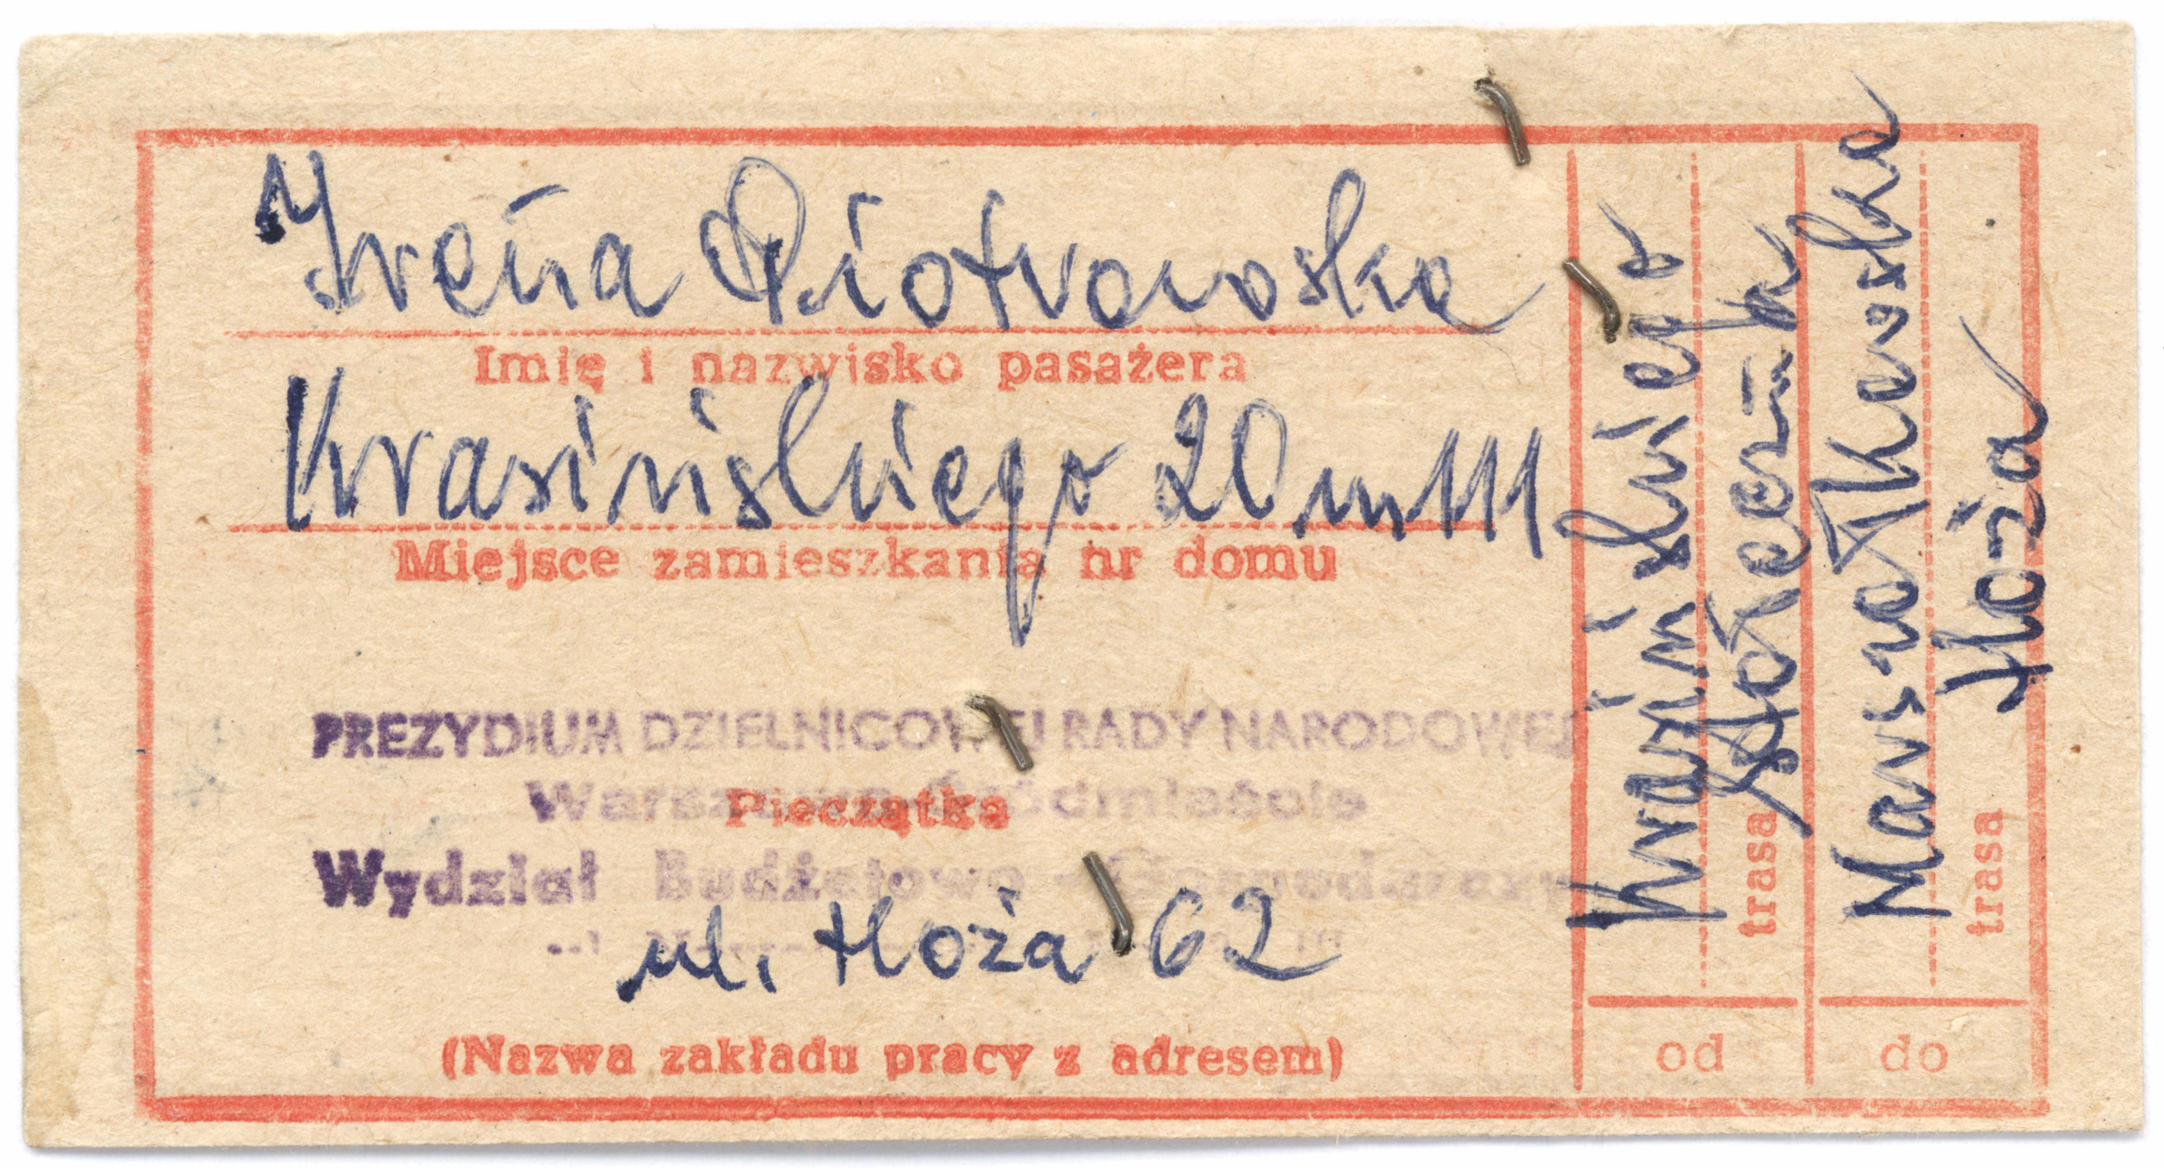 Irena Piotrowska
Imię i nazwisko pasażera
Krasińskiego 20 m 111
Miejsce zamieszkania nr domu
PREZYDIUM DZIELNICOWEJ RADY NARODOWEJ
Warszawa-Śródmieście
Pieczątka
Wydział Budżetowo - Gospodarczy
ul. Hoża 62
(Nazwa zakładu pracy z adresem)
Krasińskiego
trasa
od
Marszałkowska
Hoża
trasa
do